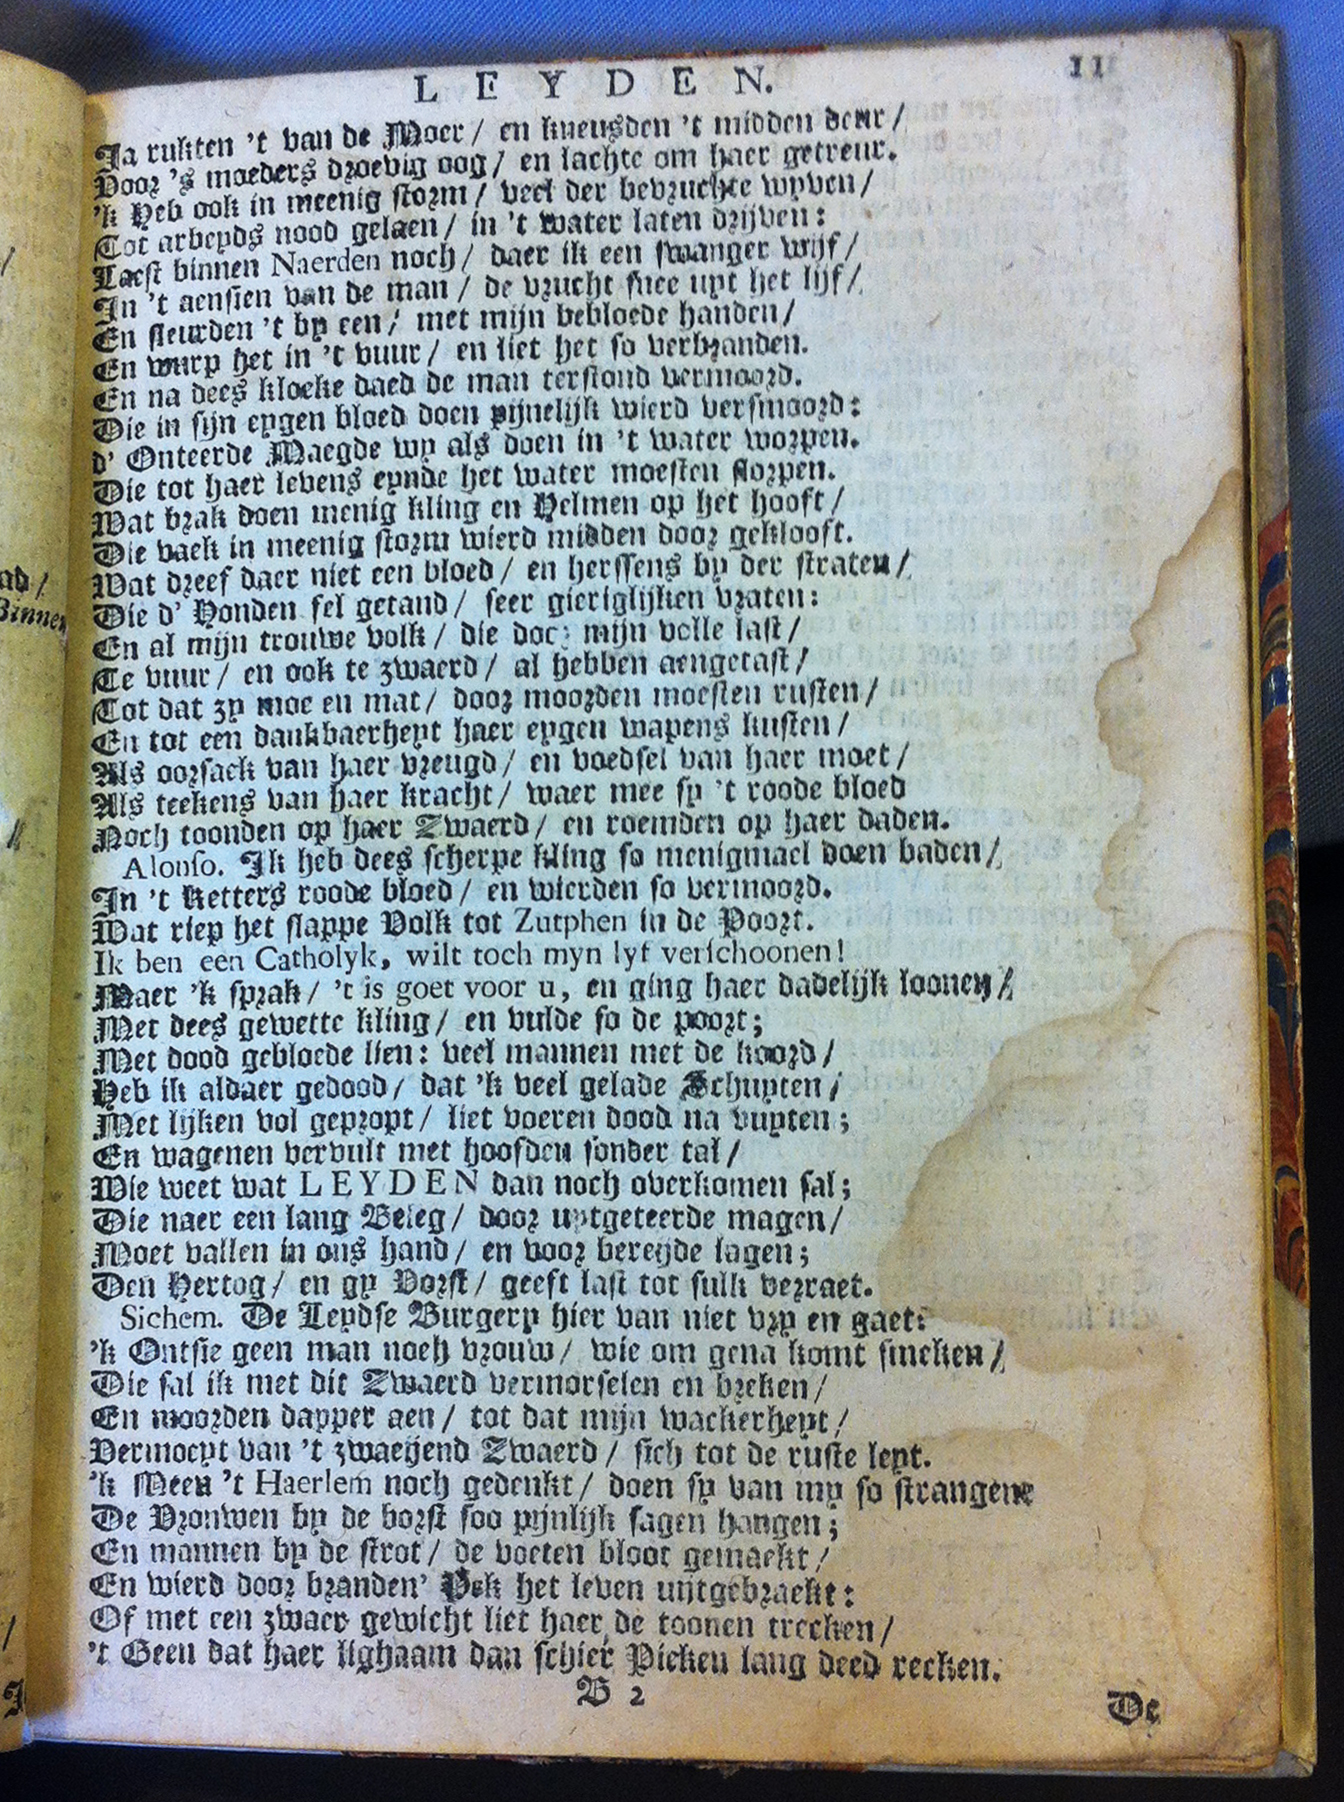 LEYDEN. 11
Ja rukten 't van de Moer / en kneusden 't midden deur /
Voor 's moeders droevig oog / en lachte om haer getreur.
'k Heb ook in meenig storm / veel der bevruchte wyven /
Tot arbeyds nood gelaen / in 't water laten drijven:
Laest binnen Naerden noch / daer ik een swanger wijf /
In 't aensien van de man / de vrucht snee uyt het lijf /
En sleurden 't by een / met mijn bebloede handen /
En wurp het in 't vuur / en liet het so verbranden.
En na dees kloeke daed de man terstond vermoord.
Die in sijn eygen bloed doen pijnelijk wierd versmoord:
d' Onteerde Maegde wy als doen in 't water worpen.
Die tot haer levens eynde het water moesten slorpen.
Wat brak doen menig kling en Helmen op het hooft /
Die vaek in meenig storm wierd midden door geklooft.
Wat dreef daer niet een bloed / en herssens by der straten /
Die d' Honden fel getand / seer gieriglijken vraten:
En al mijn trouwe volk / die doe mijn volle last /
Te vuur / en ook te zwaerd / al hebben aengetast /
Tot dat zy moe en mat / door moorden moesten rusten /
En tot een dankbaerheyt haer eygen wapens kusten /
Als oorsaek van haer vreugd / en voedsel van haer moet /
Als teekens van haer kracht / waer mee sy 't roode bloed
Noch toonden op haer Zwaerd / en roemden op haer daden.
Alonso. Ik heb dees scherpe kling so menigmael doen baden /
In 't Ketters roode bloed / en wierden so vermoord.
Wat riep het slappe Volk tot Zutphen in de Poort.
Ik ben een Catholyk, wilt toch myn lyf verschoonen!
Maer 'k sprak / 't is goet voor u, en ging haer dadelijk loonen /
Met dees gewette kling / en vulde so de poort;
Met dood gebloede lien: veel mannen met de koord /
Heb ik aldaer gedood / dat 'k veel gelade Schuyten /
Met lijken vol gepropt / liet voeren dood na buyten;
En wagenen vervult met hoofden sonder tal /
Wie weet wat LEYDEN dan noch overkomen sal;
Die naer een lang Beleg / door uytgeteerde magen /
Moet vallen in ons hand / en voor bereyde lagen;
Den Hertog / en gy Vorst / geeft last tot sulk verraet.
Sichem. De Leydse Burgery hier van niet vry en gaet:
'k Ontsie geen man noch vrouw / wie om gena komt smeken /
Die sal ik met dit Zwaerd vermorselen en breken /
En moorden dapper aen / tot dat mijn wackerheyt /
Vermoeyt van 't zwaeyend Zwaerd / sich tot de ruste leyt.
'k Meen 't Haerlem noch gedenkt / doen sy van my so strangene
De Vrouwen by de borst soo pijnlijk sagen hangen;
En mannen by de strot / de voeten bloot gemaekt /
En wierd door branden' Pek het leven uijtgebraekt:
Of met een zwaer gewicht liet haer de toonen trecken /
't Geen dat haer lighaam dan schier Picken lang deed recken.
B 2
De
ad /
Binnen